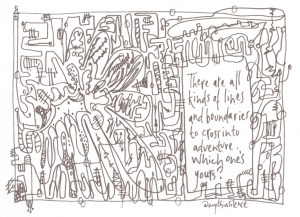 There are all
kinds of lines
and boundaries
to cross into
adventure.
Which one's
yours?